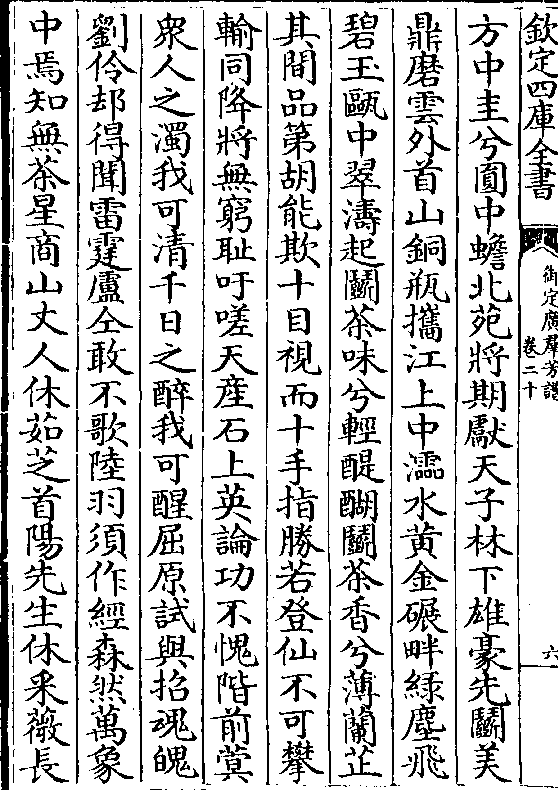 欽定四庫全書
御定廣羣芳譜
卷二十
六
方中圭兮圓中蟾北苑將期獻天子林下雄豪先鬭美
鼎磨雲外首山銅瓶攜江上中濡水黃金碾畔綠塵飛
碧玉甌中翠濤起鬭茶味兮輕醍醐鬭茶香兮薄蘭芷
其間品第胡能欺十目視而十手指勝若登仙不可攀
輸同降將無窮恥吁嗟天産石上英論功不愧階前蓂
衆人之濁我可清千日之醉我可醒屈原試與招魂魄
劉伶却得聞雷霆盧仝敢不歌陸羽須作經森然萬象
中焉知無茶星商山丈人休茹芝首陽先生休采薇長